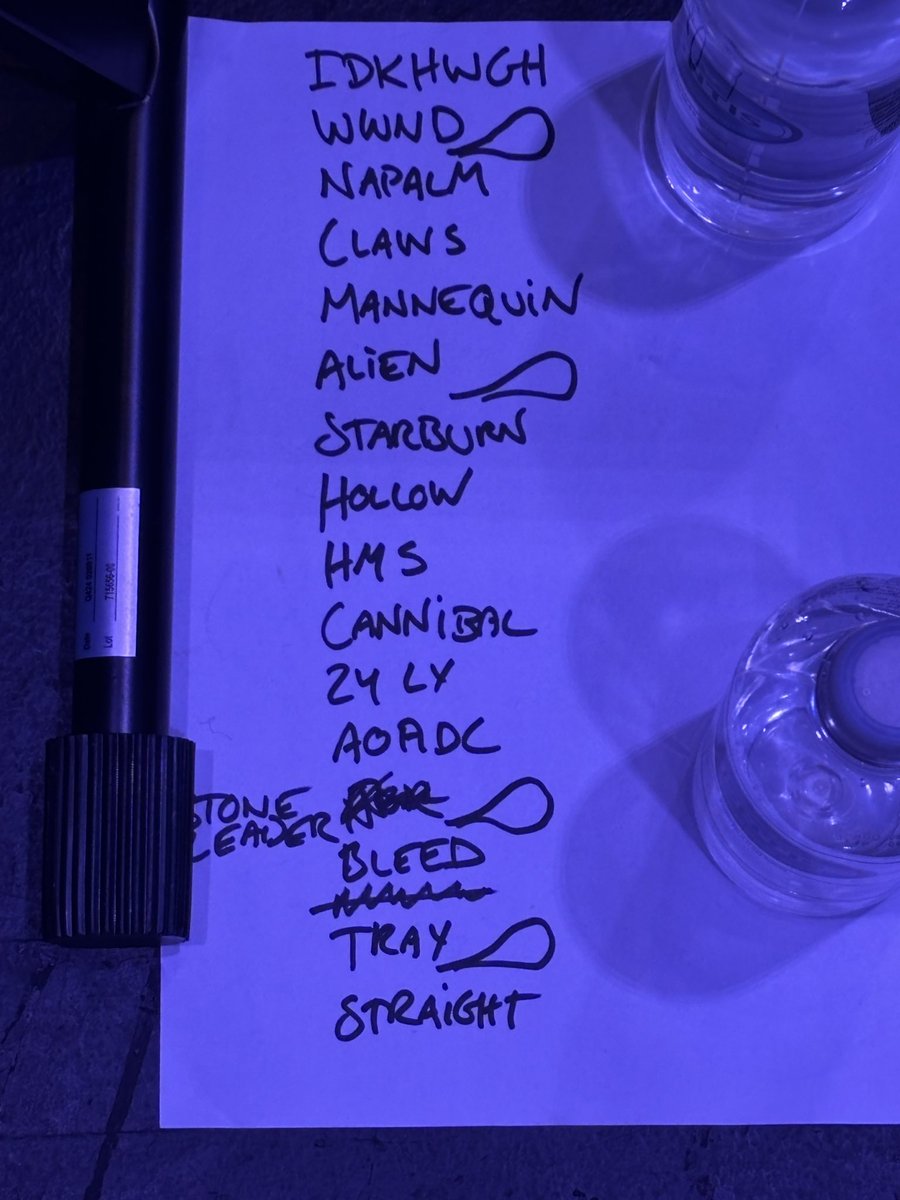 IDKHWGH
WWND
NAPALM
CLAWS
MANNEQUiN
ALiEN
STARBURN
HOLLOW
HMS
CANNiBAL
24 LY
AOADC
STONE
LEADER
BLEED
TRAY
STRAiGHT
Lot 715656-00